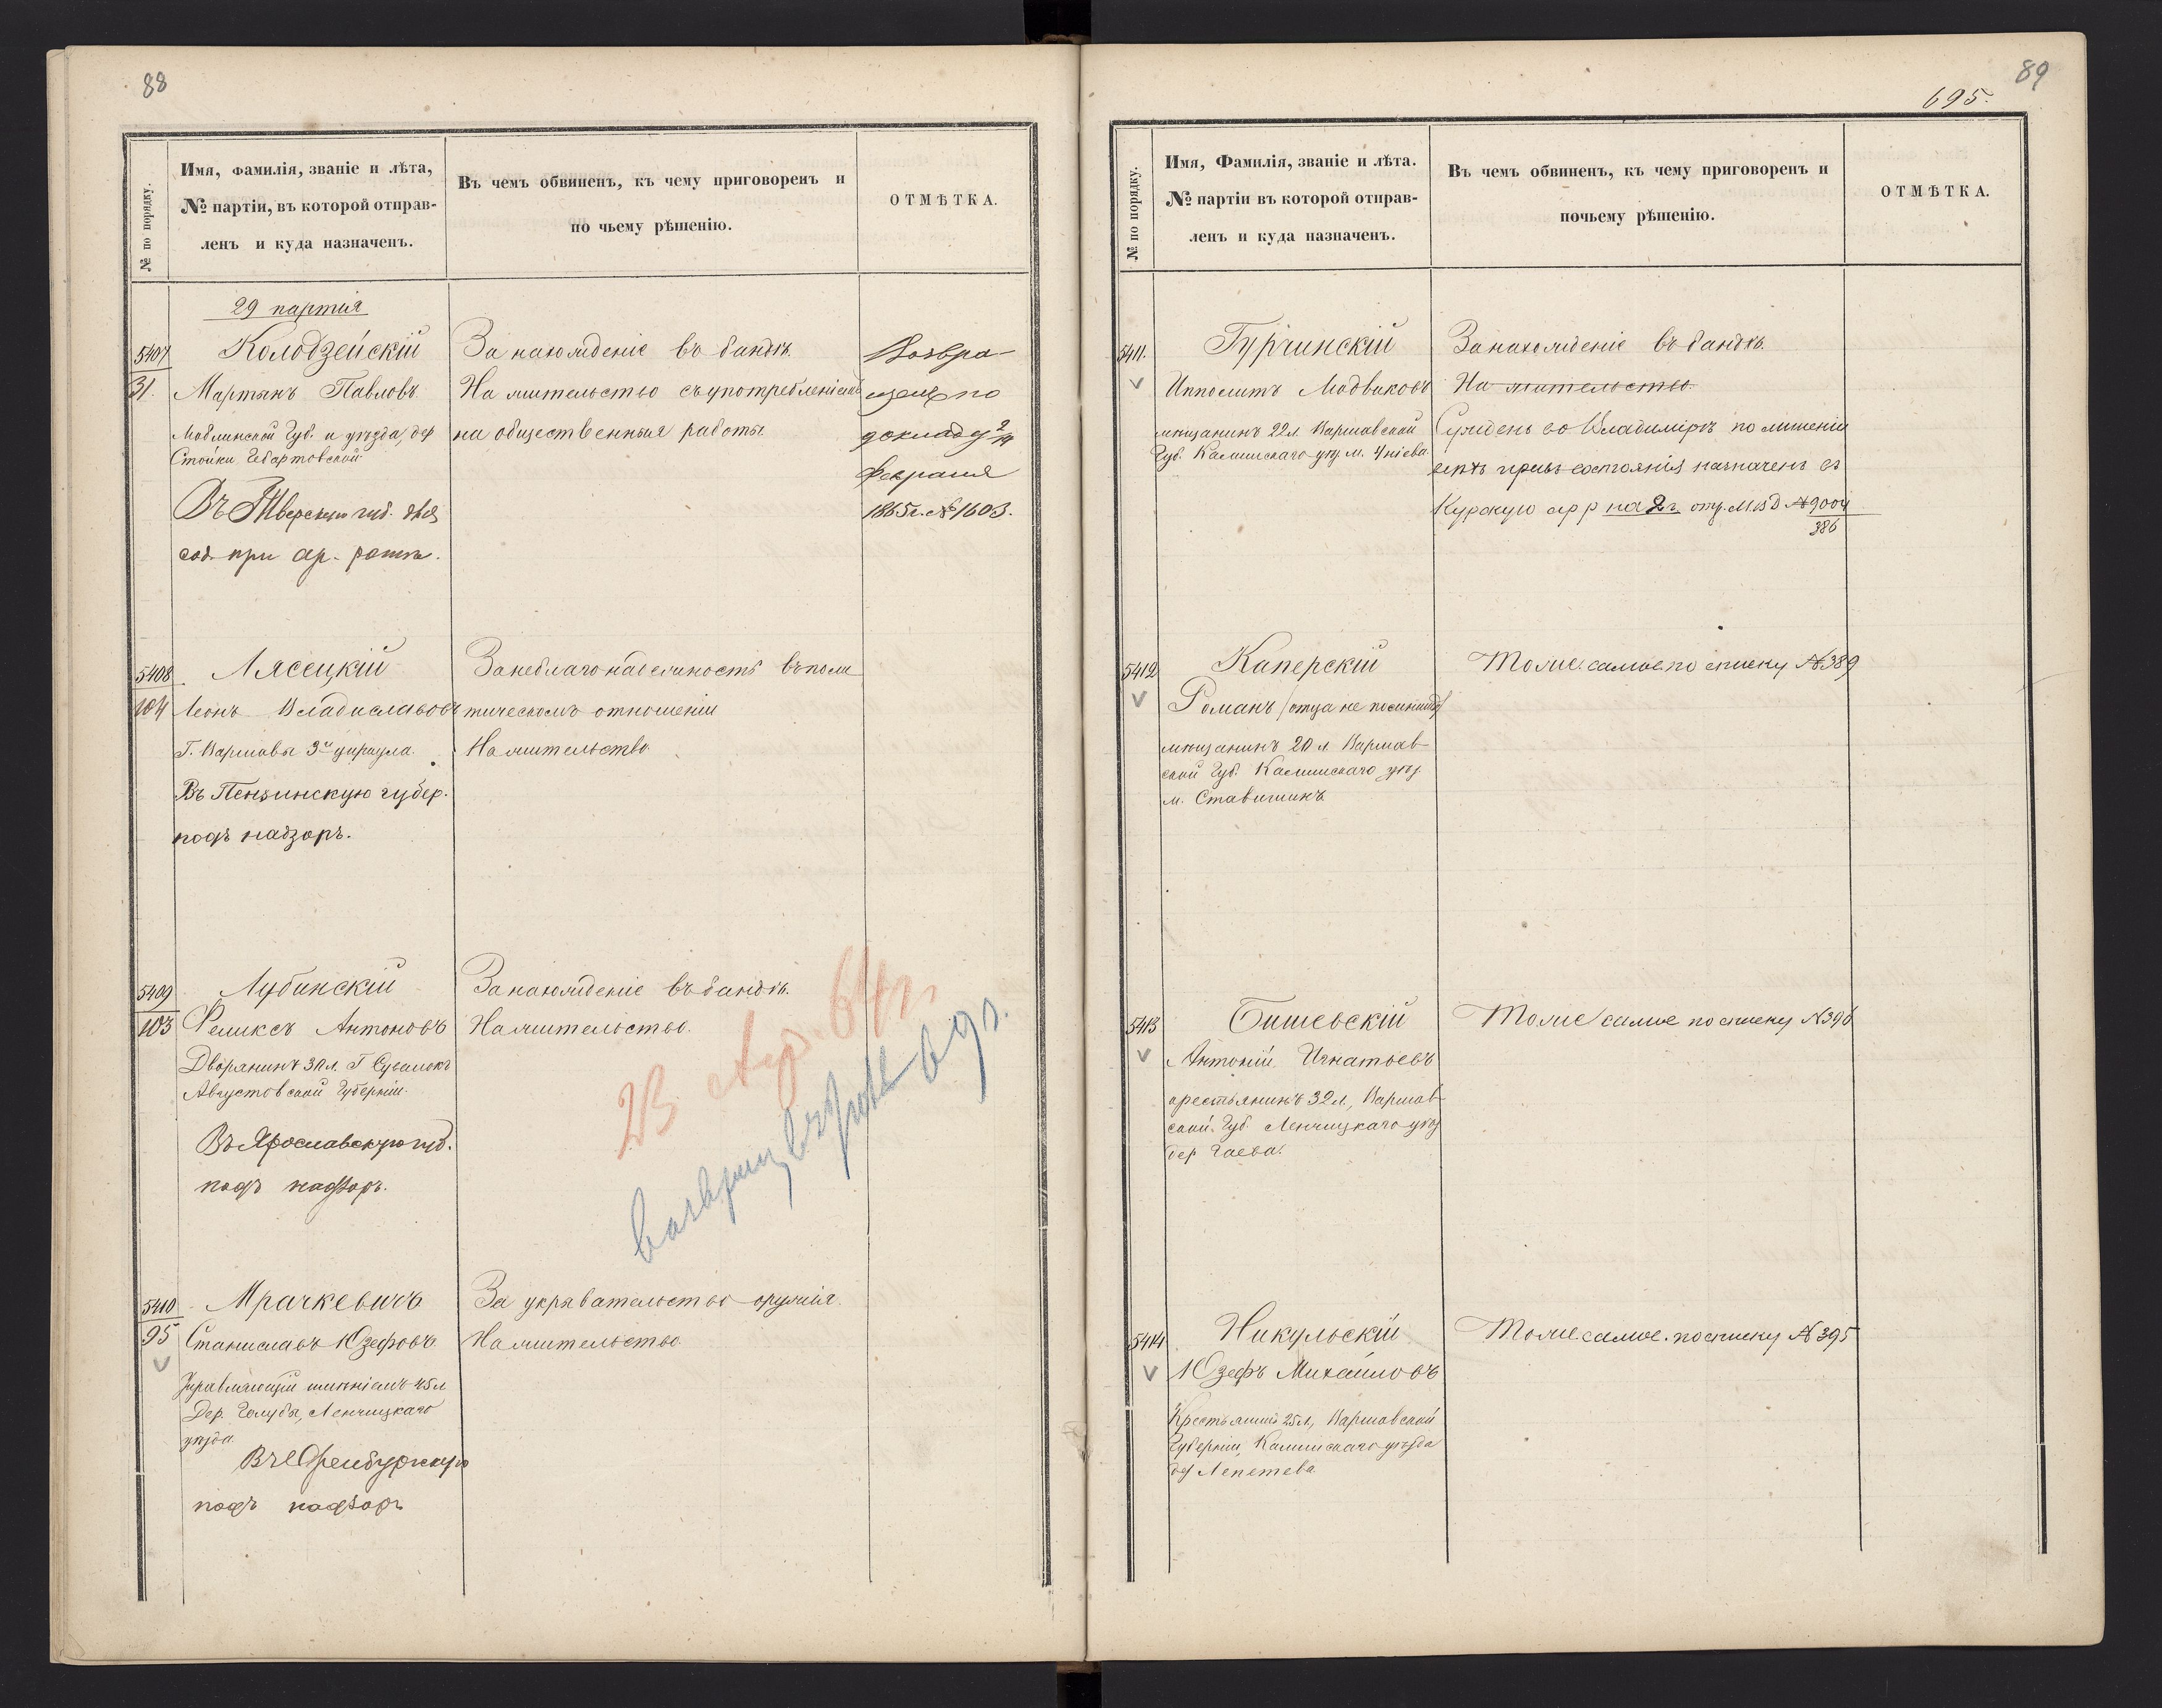 88
№ по порядку.
Имя, фамилія, званіе и лѣта,
№ партіи, въ которой отправ-
ленъ и куда назначенъ.
Въ чемъ обвиненъ, къ чему приговоренъ и
по чьему рѣшенію.
ОТМѢТКА.
29 партія
5407
31.
Колодзейскій
Мартынъ Павловъ
Люблинской Губ. и уѣзда, дер
Стойки
Въ Тверскую губ. для
сод. при ар. ротѣ.
За нахожденіе въ бандѣ.
На жительство съ употребленіемъ
на общественныя работы.
Возвра-
щенъ по
докладу
февраля
1865 г. № 1603.
5408
104
Лясецкій
Леонъ Владиславовъ
Г. Варшавы 3го циркула.
Въ Пензинскую губер.
подъ надзоръ.
За неблагонадежность въ поли
тическомъ отношеніи
На жительство.
5409
103
Лубинскій
Феликсъ Антоновъ
Дворянинъ 30 л. Г Сувалокъ
Августовской Губерніи.
Въ Ярославскую губ.
подъ надзоръ.
За нахожденіе въ бандѣ.
На жительство.
5410
95
Мрачкевичъ
Станиславъ Юзефовъ.
Управляющій имѣніемъ 45 л
Дер. Голубы, Ленчицкаго
уѣзда.
Въ Оренбургскую
подъ надзоръ
За укрывательство оружія.
На жительство.
89
695.
№ по порядку.
Имя, Фамилія, званіе и лѣта.
№ партіи въ которой отправ-
ленъ и куда назначенъ.
Въ чемъ обвиненъ, къ чему приговоренъ и
почьему рѣшенію.
ОТМѢТКА.
5411.
Гурчинскій
Ипполитъ
мѣщанинъ 22 л. Варшавской
Губ. Калишскаго уѣз. м.
За нахожденіе въ бандѣ.
На жительство.
Сужденъ во Владимірѣ по лишеніи
всѣхъ правъ состоянія назначенъ въ
Курскую ар р на 2 г. отз. М В Д. № 9004
386
5412
Каперскій
Романъ (отца не
мѣщанинъ 20 л Варшав-
ской Губ. Калишскаго уѣз.
м. Ставишинъ
Тоже самое по списку № 389
5413
Бишевскій
Антоній Игнатьевъ
крестьянинъ 32 л, Варшав-
ской. Губ. Ленчицкаго уѣз
дер Гаева.
Тоже самое по списку № 396
5414
Никульскій
Юзефъ Михайловъ
Крестьянинъ 25 л, Варшавской
Губерніи, Калишскаго уѣзда
дер
Тоже самое по списку № 395